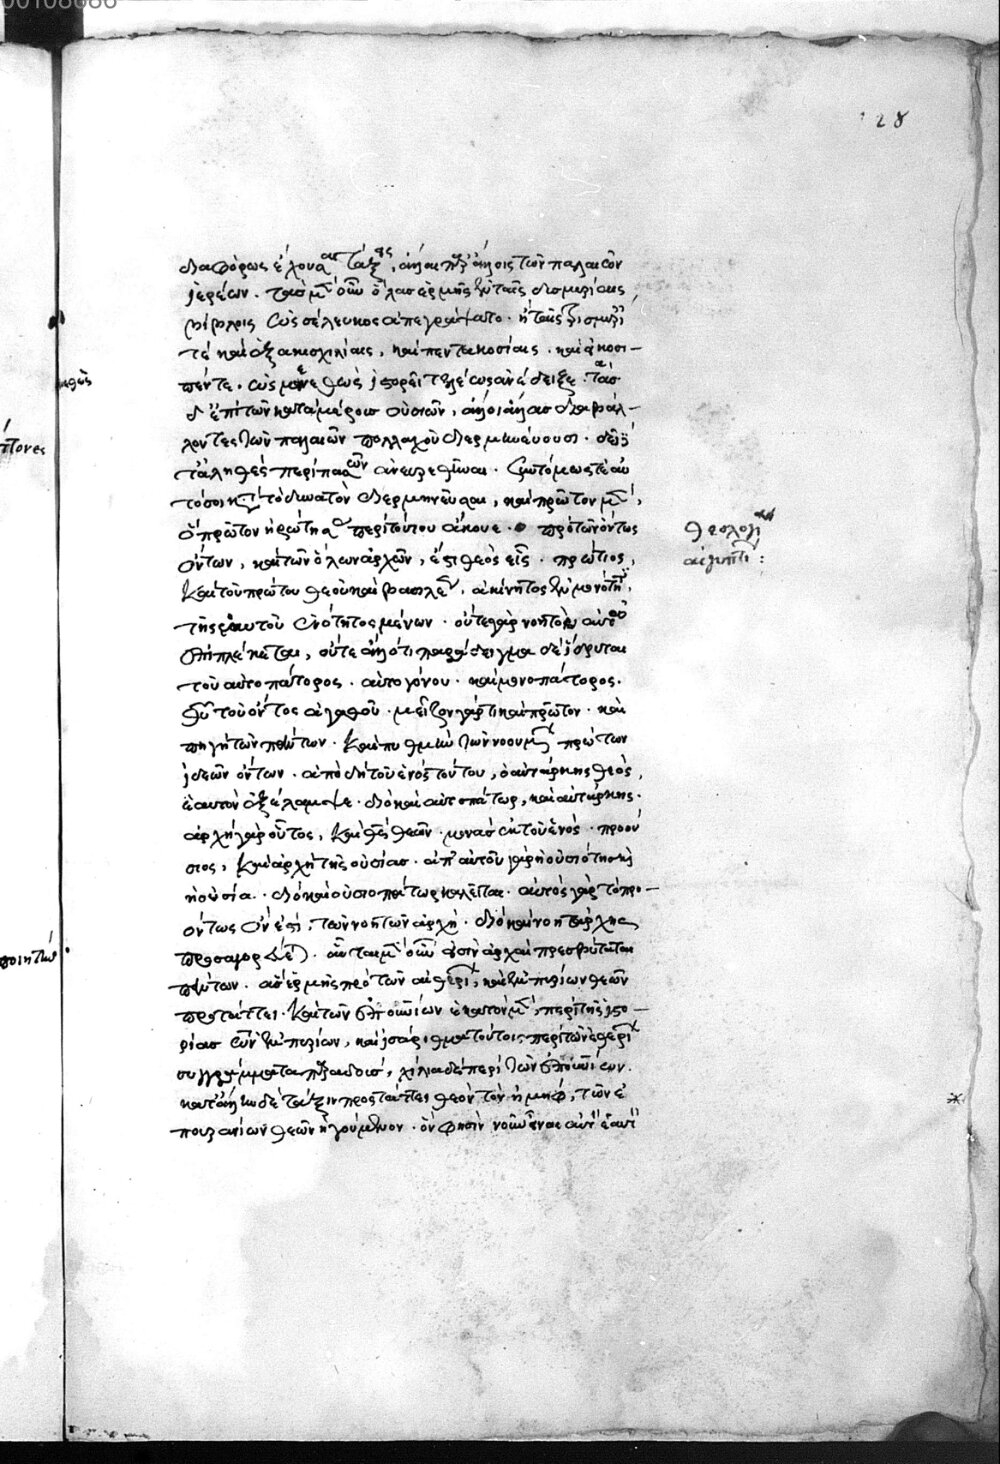 128
διαφόρως ἐχούσας τάξεις, ἄλλαι παρ' ἄλλοις τῶν παλαιῶν
ἱερέων. τὰς μὲν οὖν ὅλας ἑρμῆς ἐν ταῖς δισμυρίαις
βίβλοις ὡς σέλευκος ἀπεγράψατο. ἢ ταῖς τρισμυρί
τε καὶ ἑξακισχιλίαις, καὶ πεντακοσίαις. καὶ εἰκοσι-
πέντε. ὡς μανεθὼς ἱστορεῖ τελέως ἀνέδειξε. τὰς
δ' ἐπὶ τῶν κατὰ μέρος οὐσιῶν, ἄλλοι ἄλλας διαβάλ-
λοντες τῶν παλαιῶν πολλαχοῦ διερμηνεύουσι. δεῖ δὲ
τἀληθὲς περὶ πασῶν ἀνευρεθῆναι. συντόμως τε αὐ
τό σοι κατὰ τὸ δυνατὸν διερμηνεῦσαι, καὶ πρῶτον μὲν,
ὃ πρῶτον ἠρώτησας περὶ τούτου ἄκουε. πρὸ τῶν ὄντως
ὄντων, καὶ τῶν ὅλων ἀρχῶν, ἐστὶ θεὸς εἷς. πρώτιος,
καὶ τοῦ πρώτου θεοῦ καὶ βασιλέως, ἀκίνητος ἐν μονότητι
τῆς ἑαυτοῦ ἑνότητος μένων. οὔτε γὰρ νοητὸν αὐτῷ
ἐπιπλέκεται, οὔτε ἄλλό τι παράδειγμα δὲ ἵδρυται
τοῦ αὐτοπάτορος. αὐτογόνου. καὶ μονοπάτορος.
θεοῦ τοῦ ὄντος ἀγαθοῦ. μεῖζον γάρ τι καὶ πρῶτον. καὶ
πηγὴ τῶν πάντων. καὶ πυθμὴν τῶν νοουμένων πρώτων
ἰδεῶν ὄντων. ἀπὸ δὴ τοῦ ἑνὸς τούτου, ὁ αὐτάρκης θεὸς,
ἑαυτὸν ἐξέλαμψε. διὸ καὶ αὐτοπάτωρ, καὶ αὐτάρκης.
ἀρχὴ γὰρ οὗτος, καὶ θεὸς θεῶν. μονὰς ἐκ τοῦ ἑνός. προού
σιος, καὶ ἀρχὴ τῆς οὐσίας. ἀπ' αὐτοῦ γὰρ ἡ οὐσιότης καὶ
ἡ οὐσία. διὸ καὶ οὐσιοπάτωρ καλεῖται. αὐτὸς γὰρ τὸ προ-
όντως ὄν ἐστι, τῶν νοητῶν ἀρχή. διὸ καὶ νοητάρχης
προσαγορεύεται. αὗται μὲν οὖν εἰσὶν ἀρχαὶ πρεσβύταται
πάντων. ἃς ἑρμῆς πρὸ τῶν αἰθερίων, καὶ ἐμπυρίων θεῶν
προτάττει. καὶ τῶν ἐπουρανίων ἑκατὸν μὲν, περὶ τῆς ἱστο-
ρίας τῶν ἐμπυρίων, καὶ ἰσάριθμα τούτοις περὶ τῶν αἰθερίων
συγγράμματα παραδοὺς, χίλια δὲ περὶ τῶν ἐπουρανίων.
κατ' ἄλλην δὲ τάξιν προστάττει θεὸν τὸν ἠμήφ, τῶν ἐ
πουρανίων θεῶν ἡγούμενον. ὅν φησιν νοῦν εἶναι αὐτὸν ἑαυτὸν
θεολογία
αἰγυπτί: